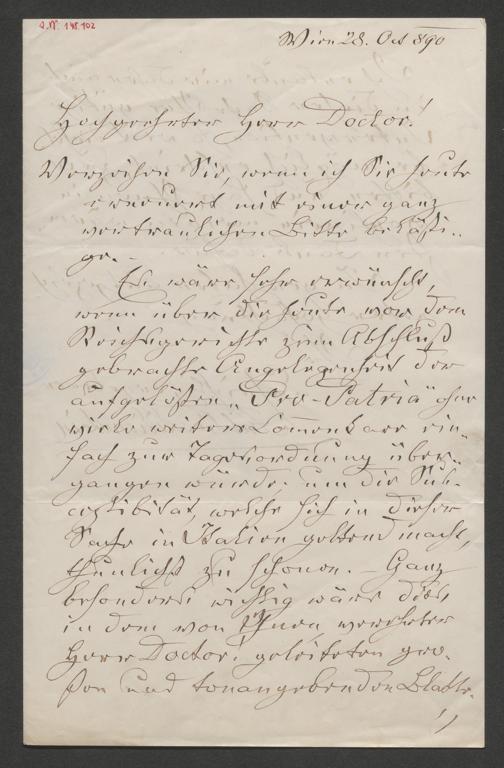 J.N. 148.102
Wien 28. Oct 890
Hochgeehrter Herr Doctor!
Verzeihen Sie, wenn ich Sie heute
erneuert mit einer ganz
vertraulichen Bitte belästi-
ge. –
Es wäre sehr erwünscht,
wenn über die heute vor dem
Reichsgerichte zum Abschluß
gebrachte Angelegenheit der
aufgelößten „Pro-Patria" ohne
viele weitere Comentare ein-
fach zur Tagesordnung über-
gangen würde; um die
welche sich in dieser
Sache in Italien geltend macht,
thunlichst zu schonen. – Ganz
besonders wichtig wäre dies,
in dem von Ihnen verehrter
Herr Doctor! geleiteten gro-
ßen und tonangebenden Blatte.